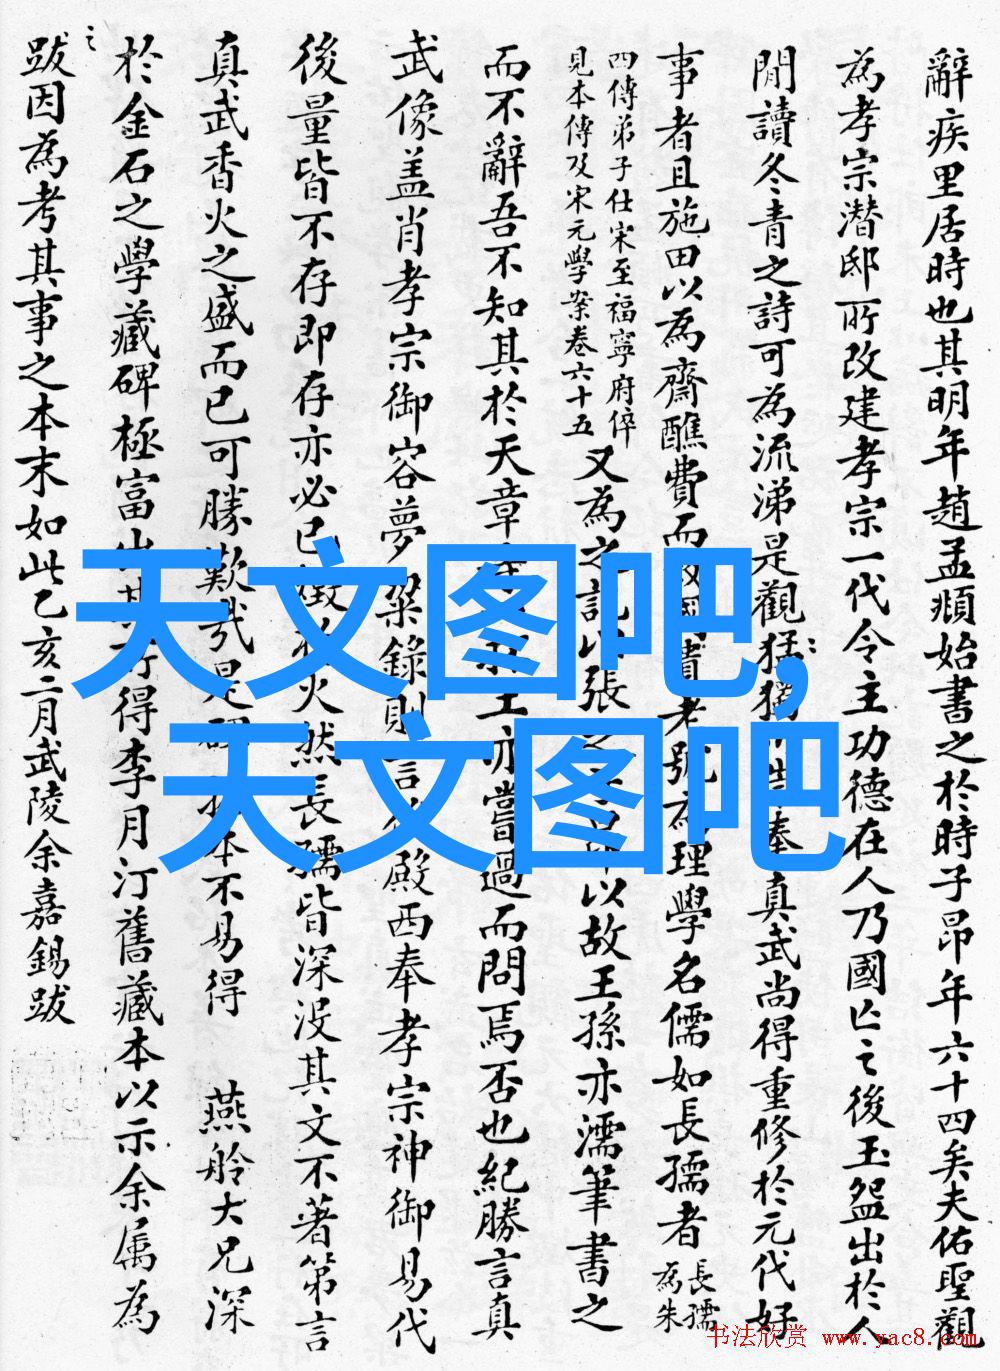 辭疾里居時也其明年趙孟頫始書之於時子昂年六十四矣夫佑聖觀
為孝宗潜邸所改建孝宗一代令主功德在人乃國亡之後玉盌出於人
閒讀冬青之詩可為流涕是觀猶獨奉真武尚得重修於元代好
事者且施田以為齋醮費而號為理學名儒如長孺者
長孺
為朱
四傳弟子仕宋至福寧府倅
見本傳及宋元學案卷六十五
又為之記以張以故王孫亦濡筆書之
而不辭吾不知其於天章亦嘗過而問焉否也紀勝言真
武像盖肖孝宗御容夢粱錄則言殿西奉孝宗神御易代
後量皆不存即存亦必已火然長孺皆深没其文不著第言
真武香火之盛而已可勝歎哉是碑本不易得 燕舲大兄深
於金石之學藏碑極富出其所得李月汀舊藏本以示余属為
之
跋因為考其事之本末如此乙亥二月武陵余嘉錫跋
天文图吧,
天文图吧
书法欣赏 www.yac8.com